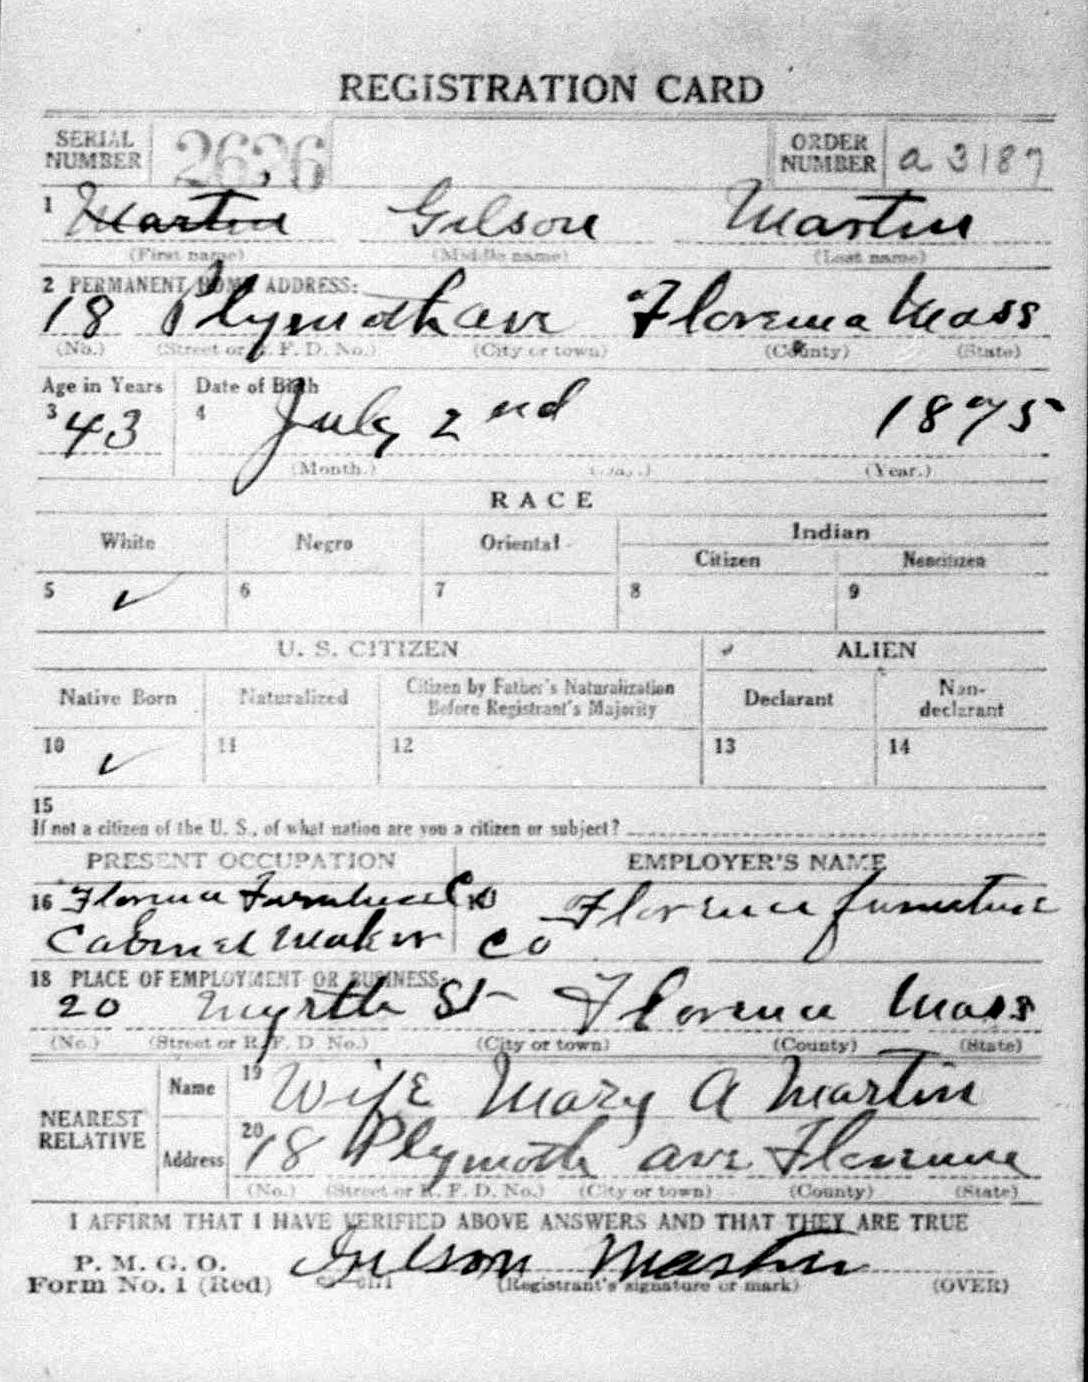 REGISTRATION CARD
SERIAL NUMBER 2636 ORDER NUMBER a 3187
1 Martin Gilson Martin
(First name) (Middle name) (Last name)
2 PERMANENT HOME ADDRESS:
18 Plymoth ave Florence Mass
(No.) (Street or R. F. D. No.) (City or town) (County) (State)
Age in Years Date of Birth
3 43 4 July 2nd 1875
(Month.) (Day.) (Year.)
RACE
White Negro Oriental Indian
Citizen Noncitizen
5 ✓ 6 7 8 9
U. S. CITIZEN ALIEN
Native Born Naturalized Citizen by Father's Naturalization Before Registrant's Majority Declarant Non-declarant
10 ✓ 11 12 13 14
15
If not a citizen of the U. S., of what nation are you a citizen or subject?
PRESENT OCCUPATION EMPLOYER'S NAME
16 Florence Furniture Co Florence furniture
Cabinet Maker Co
18 PLACE OF EMPLOYMENT OR BUSINESS:
20 Myrtle St Florence Mass
(No.) (Street or R. F. D. No.) (City or town) (County) (State)
NEAREST RELATIVE
Name 19 Wife Mary A Martin
Address 20 18 Plymoth ave Florence
(No.) (Street or R. F. D. No.) (City or town) (County) (State)
I AFFIRM THAT I HAVE VERIFIED ABOVE ANSWERS AND THAT THEY ARE TRUE
P. M. G. O.
Form No. 1 (Red) Gilson Martin
(Registrant's signature or mark) (OVER)